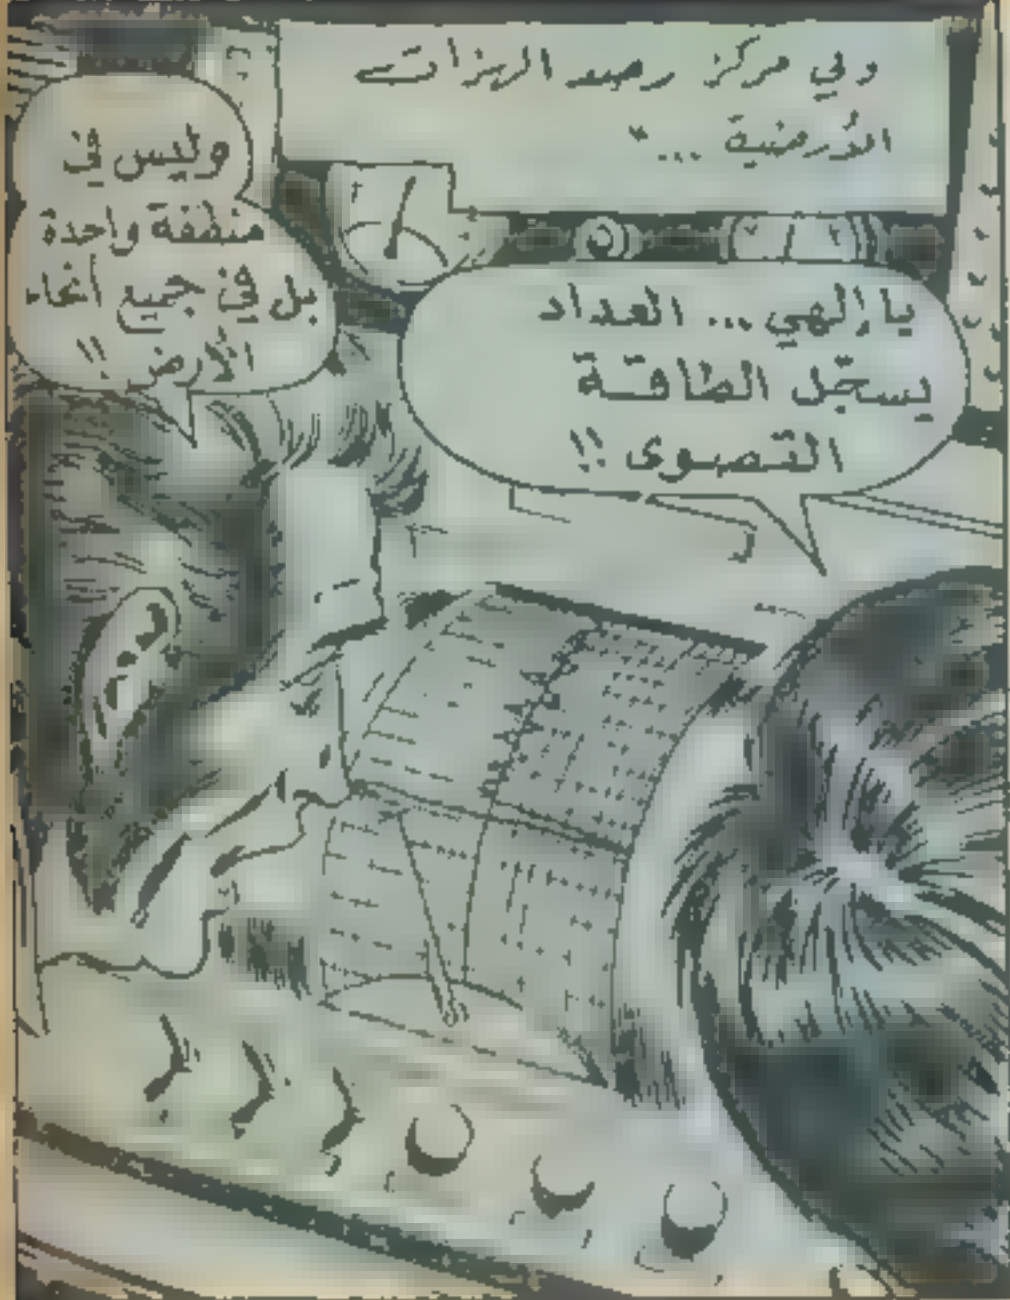 وفي مركز رصد الهزات
الأرضية ...
يا إلهي ... العداد
يسجّل الطاقة
القصوى !!
وليس في
منطقة واحدة
بل في جميع أنحاء
الأرض !!